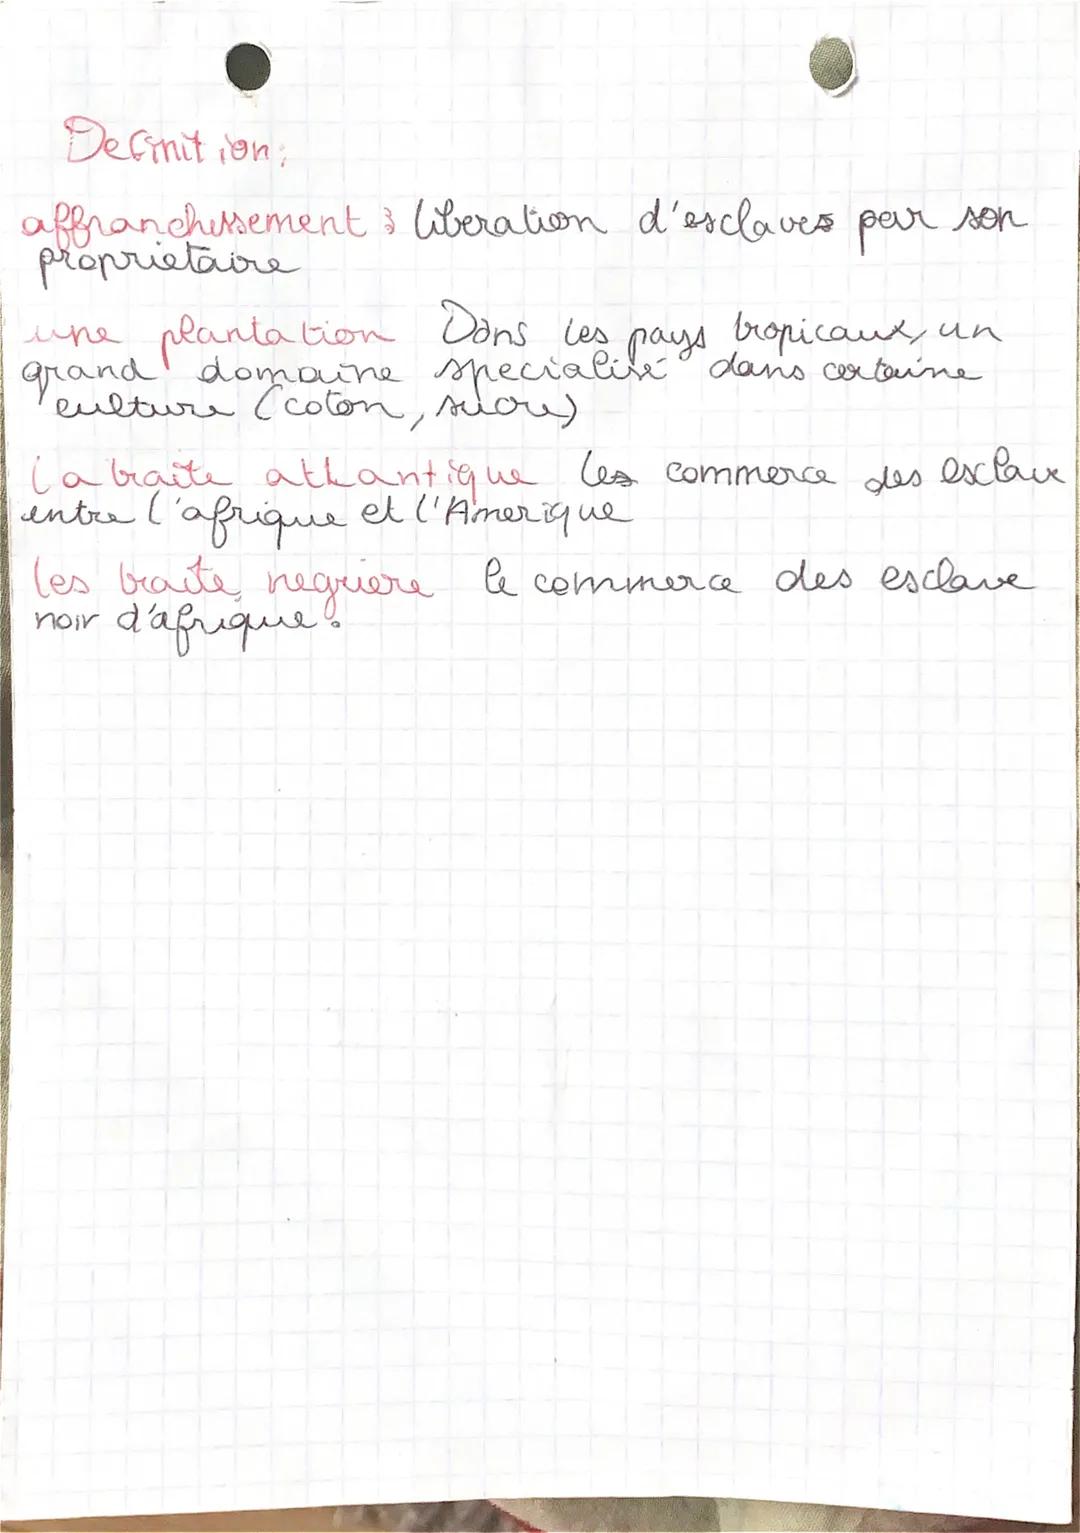 Definition:
affranchissement : liberation d'esclaves par son
proprietaire
une plantation Dans les pays tropicaux, un
grand domaine specialisé dans certaine
culture (coton, sucre)
la traite athantique les commerce des esclave
entre l'afrique et l'Amerique
les traite negriere le commerce des esclave
noir d'afrique.